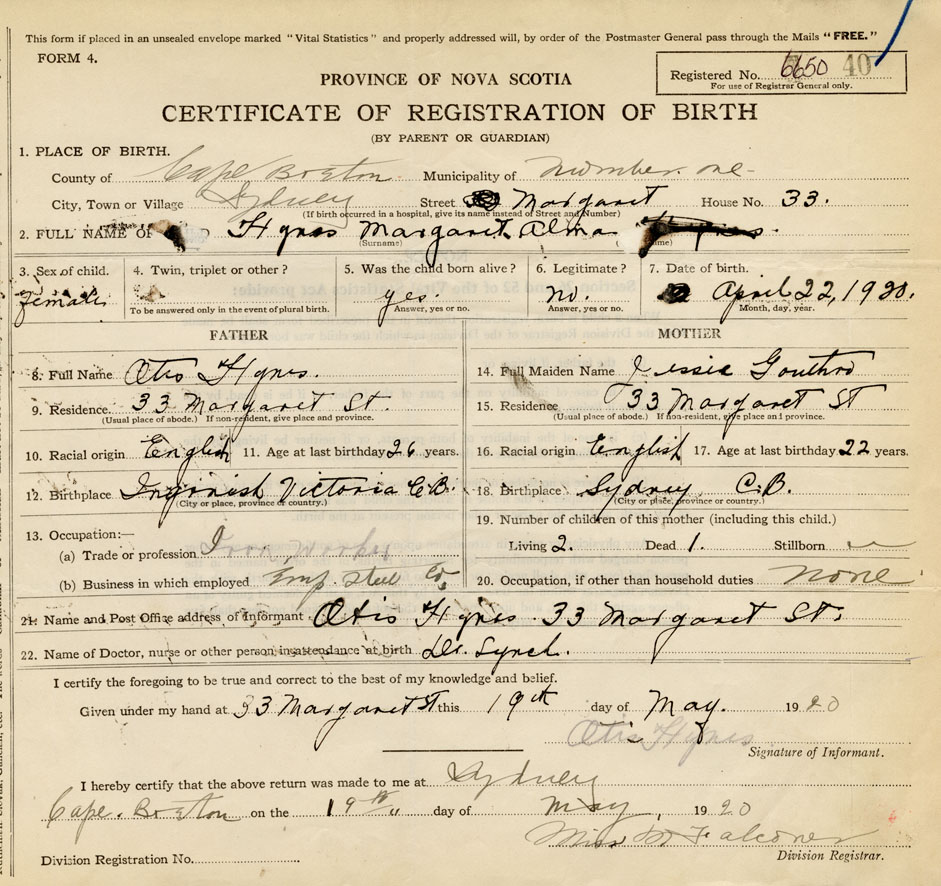 This form if placed in an unsealed envelope marked "Vital Statistics" and properly addressed will, by order of the Postmaster General pass through the Mails "FREE."
FORM 4.
Registered No. 6650 40
For use of Registrar General only.
PROVINCE OF NOVA SCOTIA
CERTIFICATE OF REGISTRATION OF BIRTH
(BY PARENT OR GUARDIAN)
1. PLACE OF BIRTH.
County of Cape Breton Municipality of Number one
City, Town or Village Sydney Street Margaret House No. 33.
(If birth occurred in a hospital, give its name instead of Street and Number)
2. FULL NAME OF Hynes Margaret Alma
(Surname)
3. Sex of child. 4. Twin, triplet or other? 5. Was the child born alive? 6. Legitimate? 7. Date of birth.
female yes. no. April 22, 1920.
To be answered only in the event of plural birth. Answer, yes or no. Answer, yes or no. Month, day, year.
FATHER MOTHER
8. Full Name Otis Hynes. 14. Full Maiden Name Jessie Gouthro
9. Residence. 33 Margaret St. 15. Residence 33 Margaret St
(Usual place of abode.) If non-resident, give place and province. (Usual place of abode.) If non-resident, give place and province.
10. Racial origin English 11. Age at last birthday 26 years. 16. Racial origin English 17. Age at last birthday 22 years.
12. Birthplace Inginish Victoria C.B. 18. Birthplace Sydney C.B.
(City or place, province or country.) (City or place, province or country.)
13. Occupation:— 19. Number of children of this mother (including this child.)
(a) Trade or profession Iron Worker Living 2. Dead 1. Stillborn
(b) Business in which employed Emp. Steel Co. 20. Occupation, if other than household duties none
21. Name and Post Office address of informant Otis Hynes 33 Margaret St.
22. Name of Doctor, nurse or other person in attendance at birth Dr. Lynch.
I certify the foregoing to be true and correct to the best of my knowledge and belief.
Given under my hand at 33 Margaret St this 19th day of May. 1920
Otis Hynes
Signature of Informant.
I hereby certify that the above return was made to me at Sydney
Cape Breton on the 19th day of May, 1920
Miss M Falconer
Division Registration No. Division Registrar.